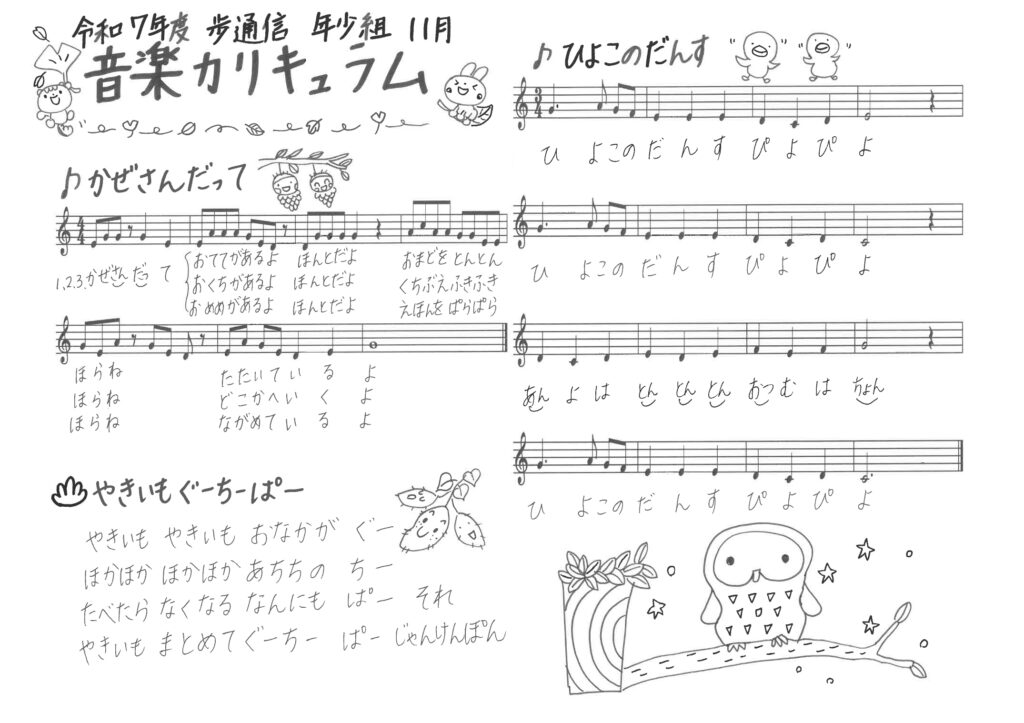 令和7年度 歩通信 年少組 11月
音楽カリキュラム
♪かぜさんだって
1.2.3.かぜさんだって
おててがあるよ ほんとだよ おまどを とんとん
おくちがあるよ ほんとだよ くちぶえ ふきふき
おめめがあるよ ほんとだよ えほんを ぱらぱら
ほらね たたいている よ
ほらね どこかへいく よ
ほらね ながめている よ
やきいもぐーちーぱー
やきいも やきいも おなかが ぐー
ほかほか ほかほか あちちの ちー
たべたら なくなる なんにも ぱー それ
やきいも まとめて ぐーちー ぱー じゃんけんぽん
♪ひよこのだんす
3/4
ひ よこのだんす ぴよぴ よ
ひ よこのだんす ぴよぴ よ
あんよは とんとんとん おつむは ちょん
ひ よこのだんす ぴよぴ よ